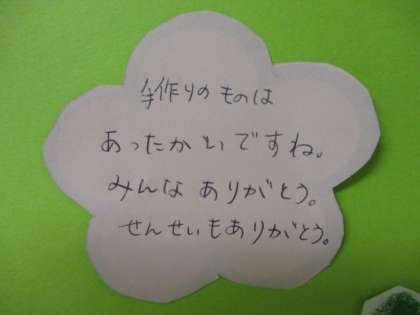 手作りのものは
あったかいですね。
みんなありがとう。
せんせいもありがとう。